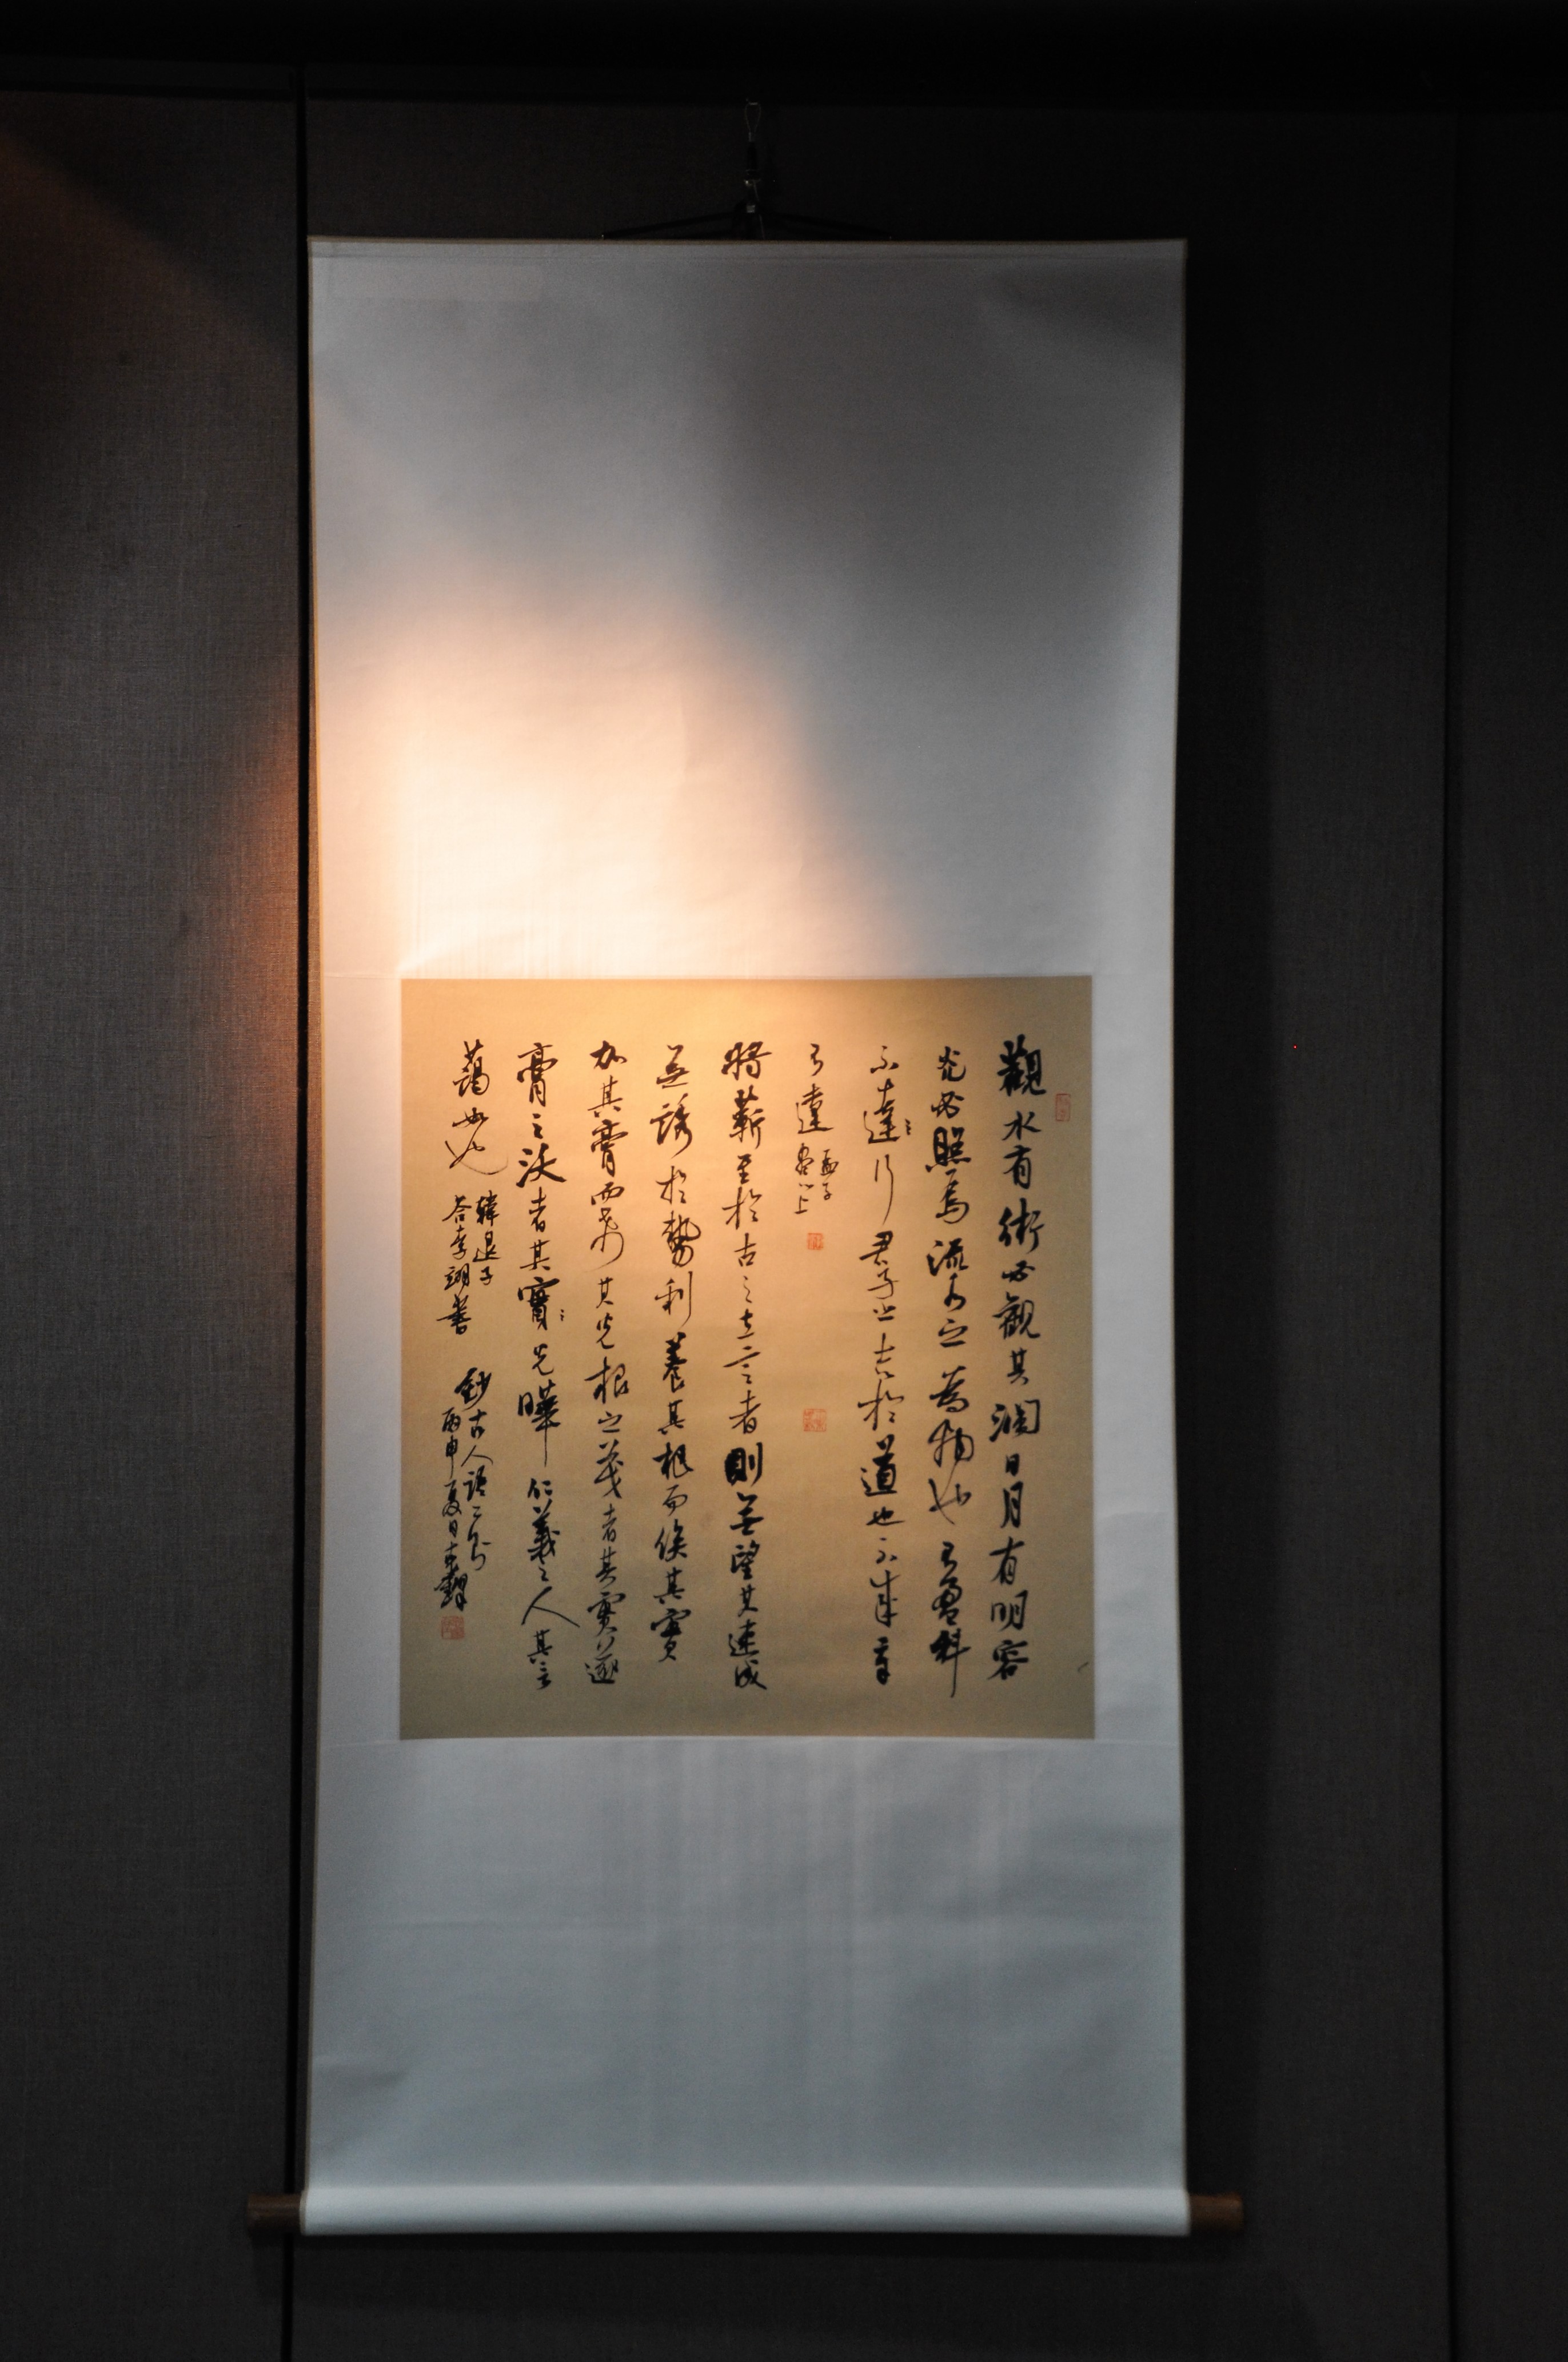 觀水有術必觀其瀾日月有明容
光必照焉流水之為物也不盈科
不達〻行君子之志於道也不成章
不達
孟子
盡心上
將蘄至於古之立言者則無望其速成
無誘於勢利養其根而俟其實
加其膏而希其光根之茂者其實遂
膏之沃者其實〻光曄仁義之人其言
藹如也
韓退子
答李翊書
鈔古人語二則
丙申夏日